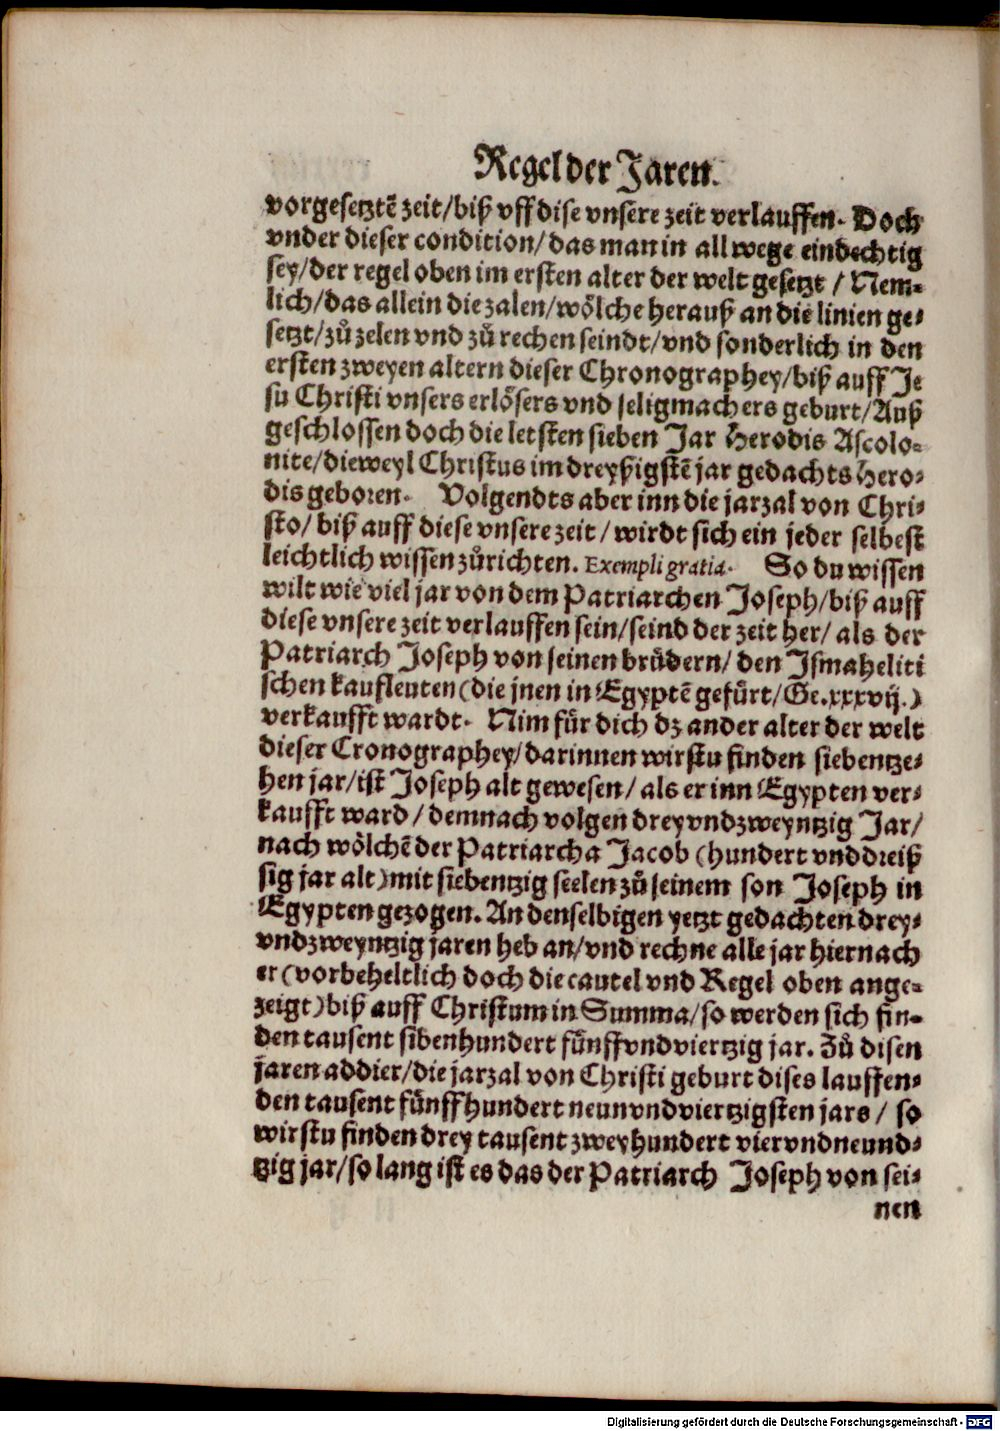 Regel der Jaren.
vorgesetztẽ zeit/biß vff dise vnsere zeit verlauffen. Doch
vnder dieser condition/das man in all wege eindechtig
sey/der regel oben im ersten alter der welt gesetzt / Nem-
lich/das allein die zalen/woͤlche herauß an die linien ge-
setzt/zuͦ zelen vnd zuͦ rechen seindt/vnd sonderlich in den
ersten zweyen altern dieser Chronographey/biß auff Je
su Christi vnsers erloͤsers vnd seligmachers geburt/Auß
geschlossen doch die letsten sieben Jar Herodis Ascolo-
nite/dieweyl Christus im dreyßigstẽ jar gedachts Hero-
dis geboren. Volgendts aber inn die jarzal von Chri-
sto/ biß auff diese vnsere zeit / wirdt sich ein jeder selbest
leichtlich wissen zuͦ richten. Exempli gratia. So du wissen
wilt wie viel jar von dem Patriarchen Joseph/biß auff
diese vnsere zeit verlauffen sein/seind der zeit her/ als der
Patriarch Joseph von seinen bruͤdern/ den Jsmaheliti
schen kaufleuten (die jnen in Egyptẽ gefuͤrt/Ge.xxxvij.)
verkaufft wardt. Nim fuͤr dich dz ander alter der welt
dieser Cronographey/darinnen wirstu finden siebentze-
hen jar/ist Joseph alt gewesen/ als er inn Egypten ver-
kaufft ward / demnach volgen drey vndzweyntzig Jar/
nach woͤlchẽ der Patriarcha Jacob (hundert vnd dreiß
sig jar alt) mit siebentzig seelen zuͦ seinem son Joseph in
Egypten gezogen. An denselbigen yetzt gedachten drey-
vndzweyntzig jaren heb an/vnd rechne alle jar hiernach
er (vorbeheltlich doch die cautel vnd Regel oben ange-
zeigt) biß auff Christum in Summa/so werden sich fin-
den tausent sibenhundert fuͤnffvndviertzig jar. Zuͦ disen
jaren addier/die jarzal von Christi geburt dises lauffen-
den tausent fuͤnffhundert neunvndviertzigsten jars / so
wirstu finden drey tausent zweyhundert viervndneund-
tzig jar/so lang ist es das der Patriarch Joseph von sei-
nen
Digitalisierung gefördert durch die Deutsche Forschungsgemeinschaft - DFG